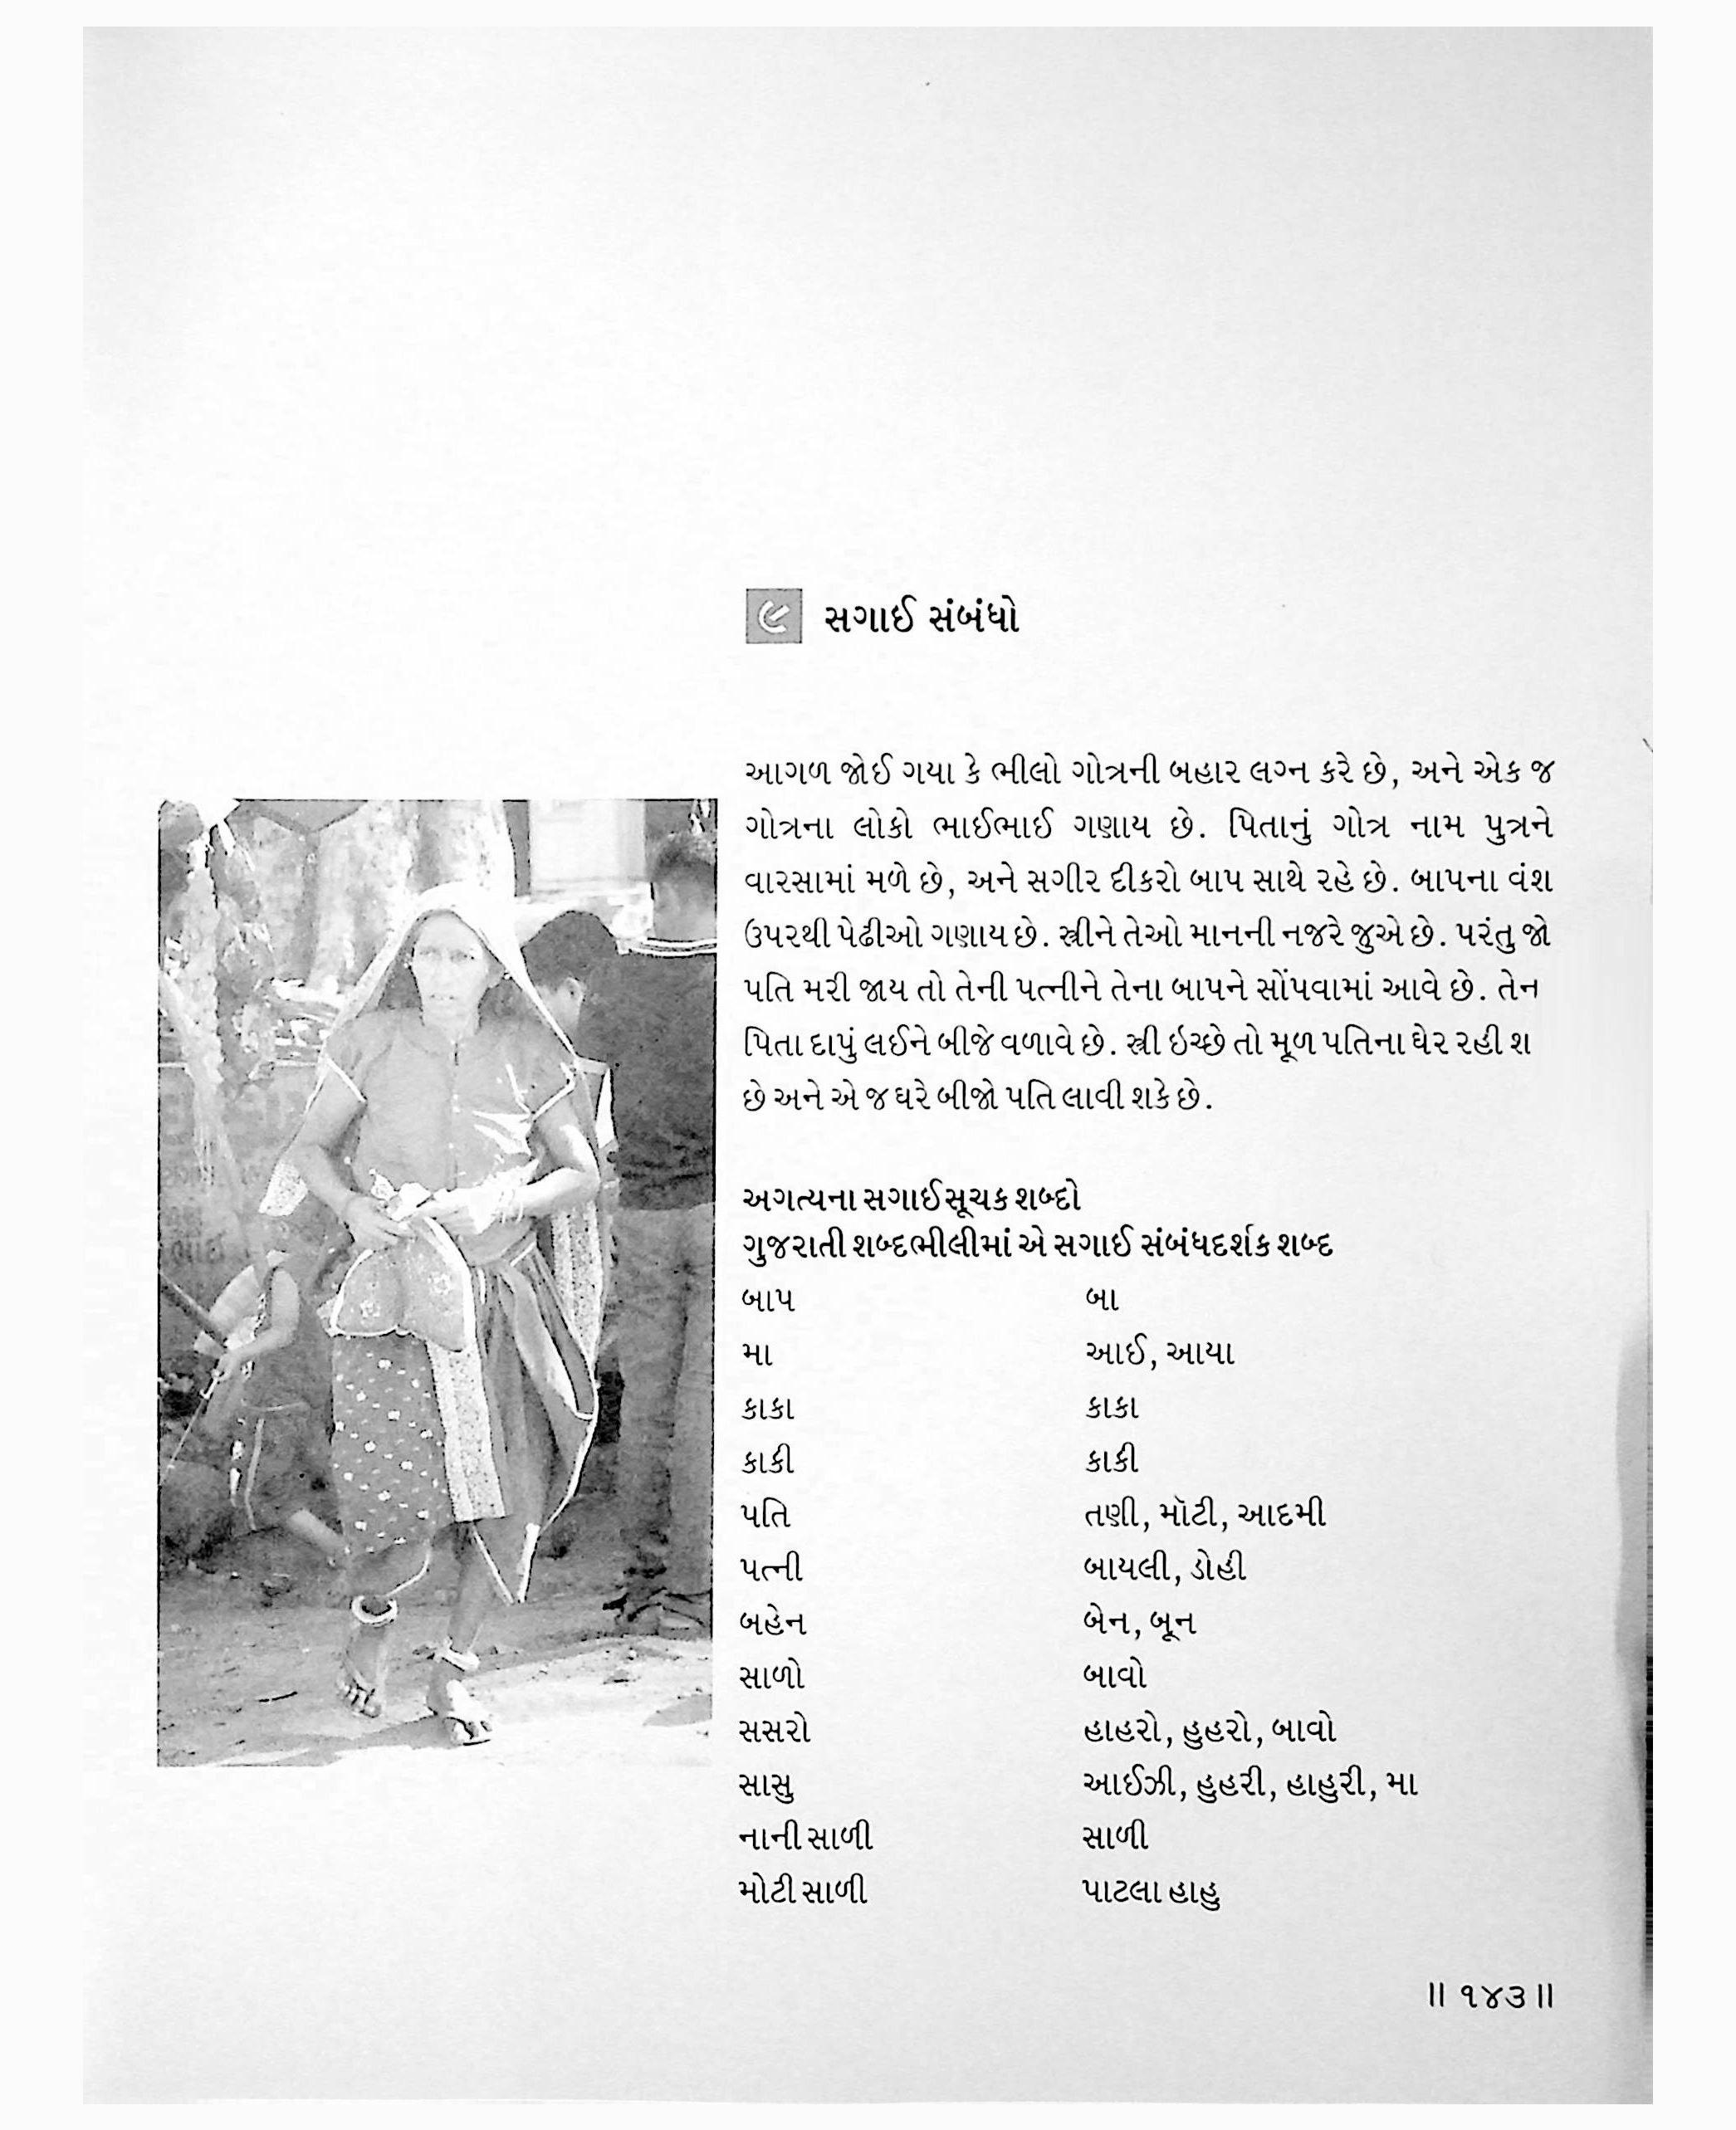 ૯ સગાઈ સંબંધો
આગળ જોઈ ગયા કે ભીલો ગોત્રની બહાર લગ્ન કરે છે, અને એક જ
ગોત્રના લોકો ભાઈભાઈ ગણાય છે. પિતાનું ગોત્ર નામ પુત્રને
વારસામાં મળે છે, અને સગીર દીકરો બાપ સાથે રહે છે. બાપના વંશ
ઉપરથી પેઢીઓ ગણાય છે. સ્ત્રીને તેઓ માનની નજરે જુએ છે. પરંતુ જો
પતિ મરી જાય તો તેની પત્નીને તેના બાપને સોંપવામાં આવે છે. તેન
પિતા દાપું લઈને બીજે વળાવે છે. સ્ત્રી ઇચ્છે તો મૂળ પતિના ઘેર રહી શ
છે અને એ જ ઘરે બીજો પતિ લાવી શકે છે.
અગત્યના સગાઈસૂચક શબ્દો
ગુજરાતી શબ્દભીલીમાં એ સગાઈ સંબંધદર્શક શબ્દ
બાપ બા
મા આઈ, આયા
કાકા કાકા
કાકી કાકી
પતિ તણી, મૉટી, આદમી
પત્ની બાયલી, ડોહી
બહેન બેન, બૂન
સાળો બાવો
સસરો હાહરો, હુહરો, બાવો
સાસુ આઈઝી, હુહરી, હાહુરી, મા
નાની સાળી સાળી
મોટી સાળી પાટલા હાહુ
॥ ૧૪૩ ॥